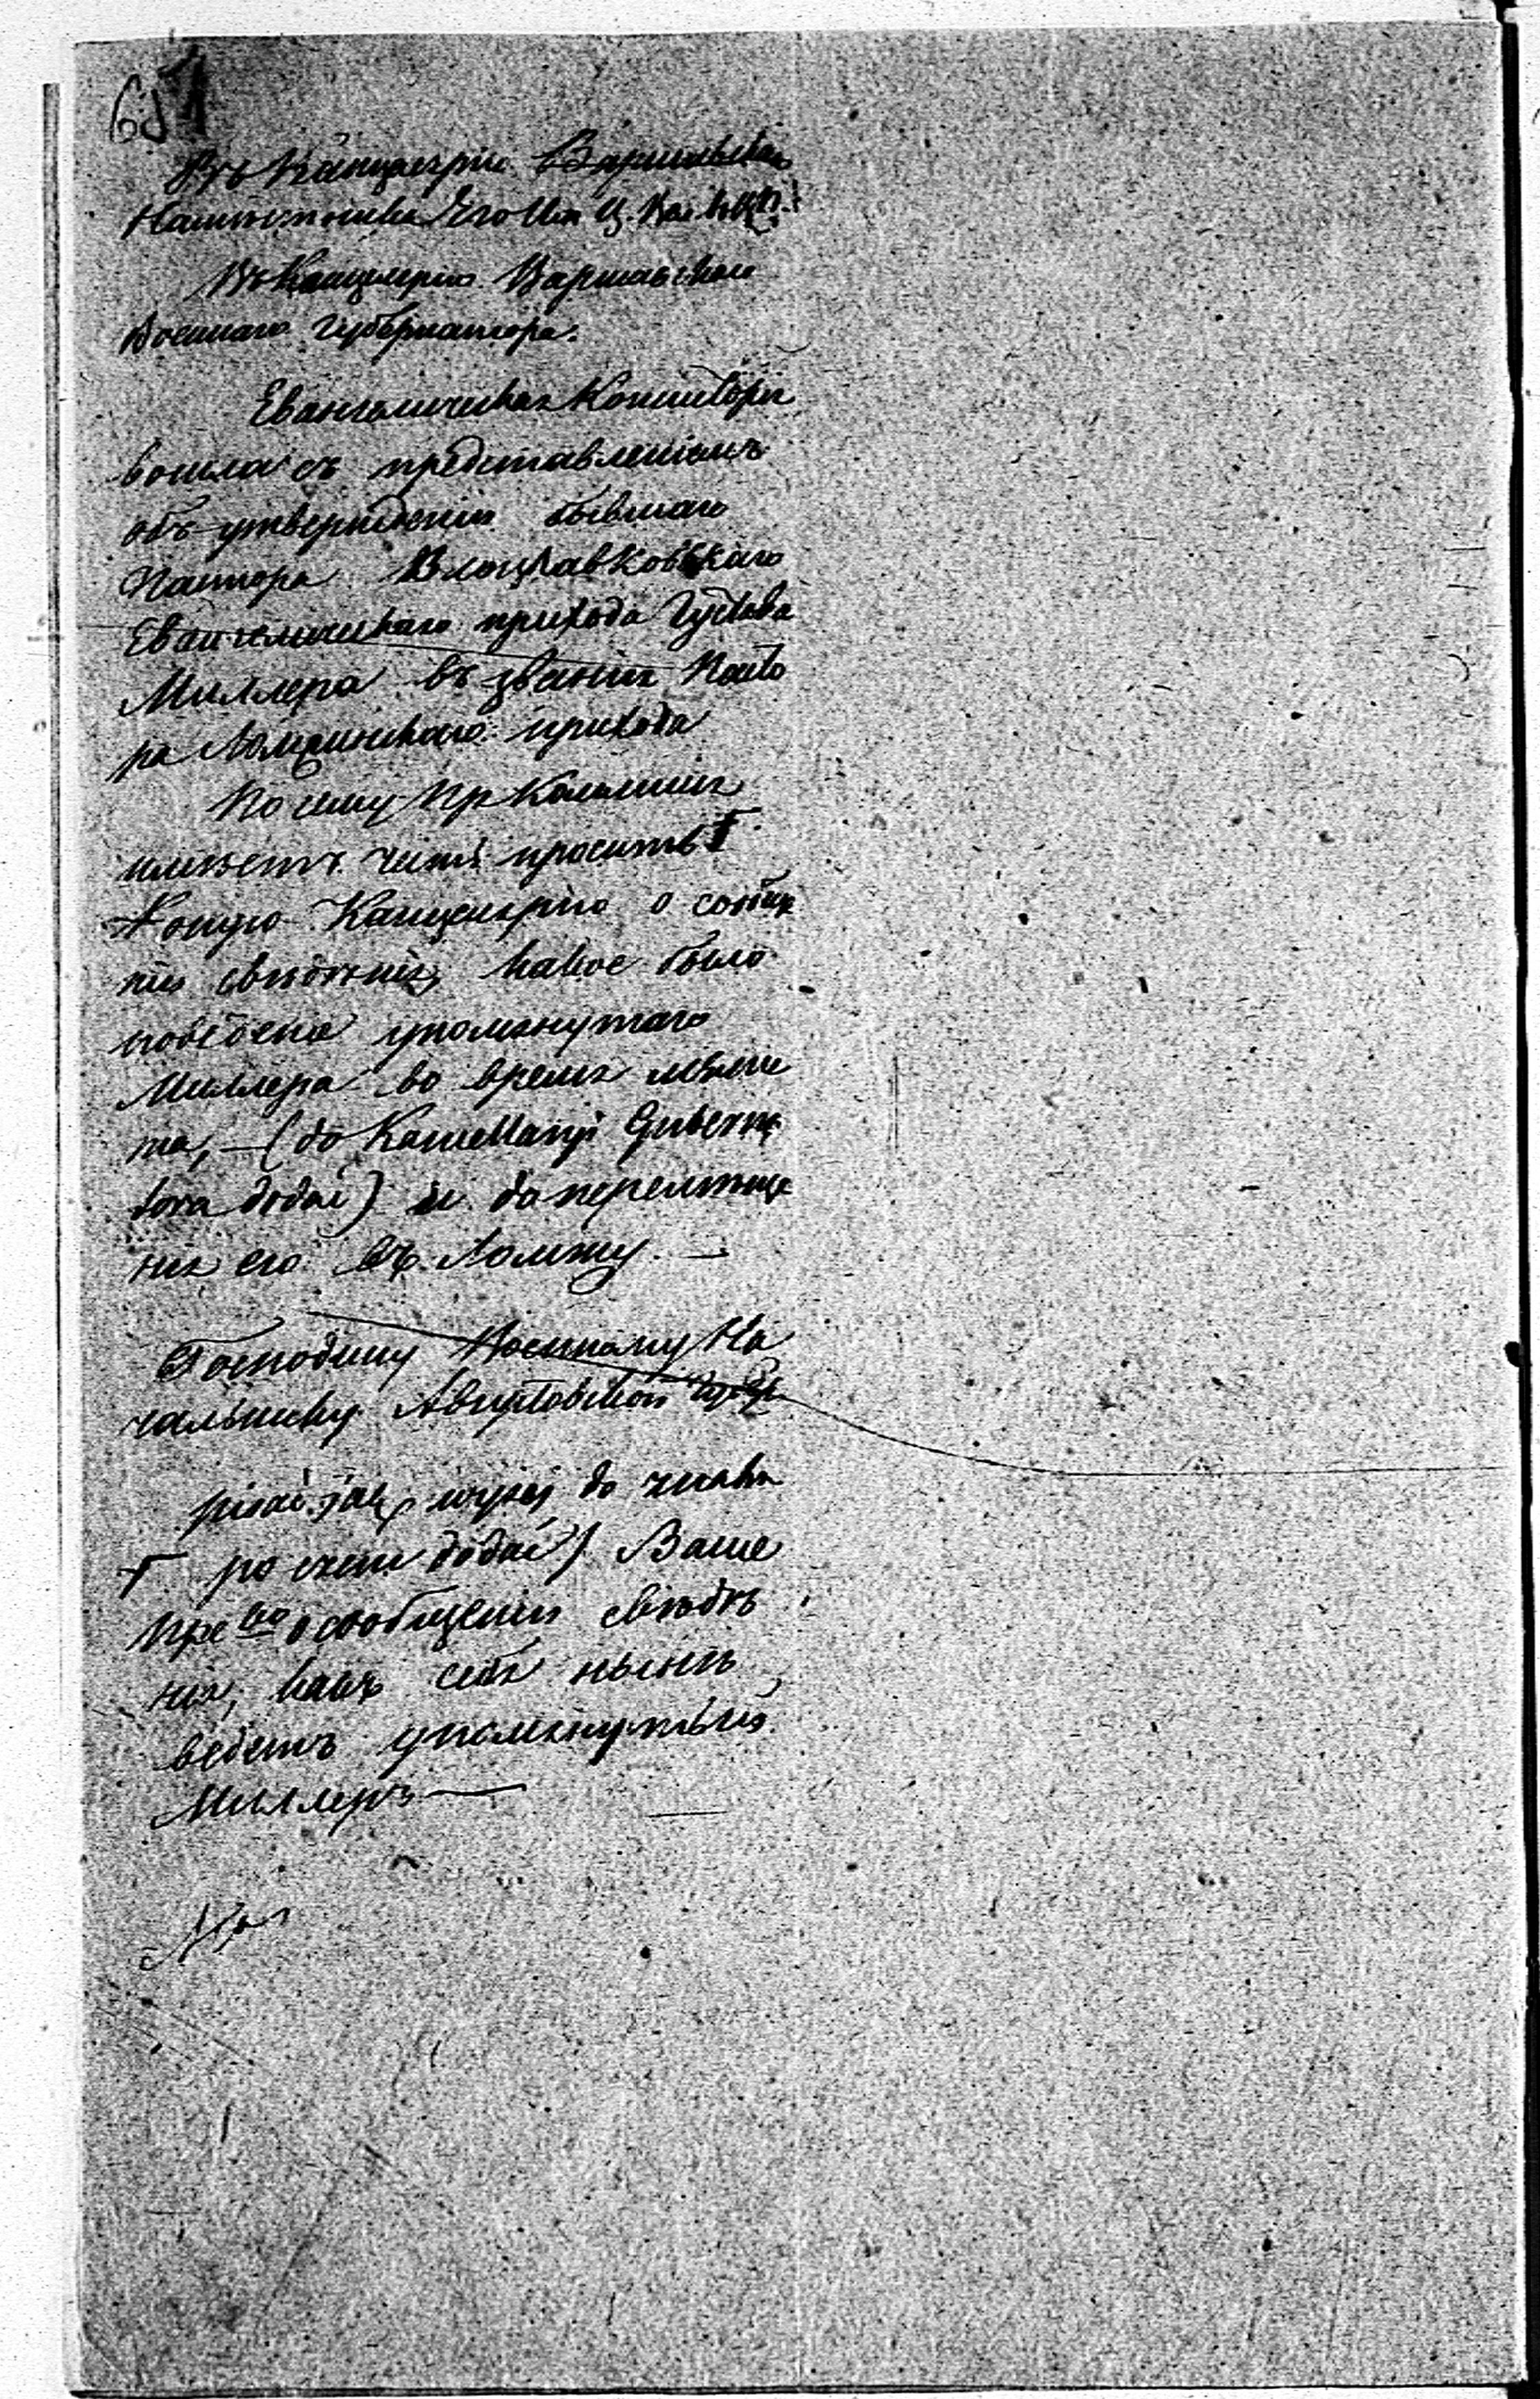 Въ Канцелярію Варшавскаго
Намѣстника Его Им. Ц.
Въ Канцелярію Варшавскаго
Военнаго Губернатора.
Евангелическая Консисторія
вошла съ представленіемъ
объ утвержденіи бывшаго
Пастора Влоцлавковскаго
Евангелическаго прихода Густава
Миллера въ званіи Пасто
ра Ломжинскаго прихода
По сему Пр Коммисія
имѣетъ честь просить Г
оную Канцелярію о сообще
ніи свѣдѣнія, какое было
поведеніе упомянутаго
Миллера во время мяте
жа, — (do Kancellaryi Guberna
tora dodać) и до перемѣще
нія его въ Ломжу. —
Господину Военному На
чальнику Августовской Губер
pisać jak wyżej do znaku
Г po czem dodać) Ваше
Прево о сообщеніи свѣдѣ
нія, какъ себя нынѣ
ведетъ упомянутый
Миллеръ —